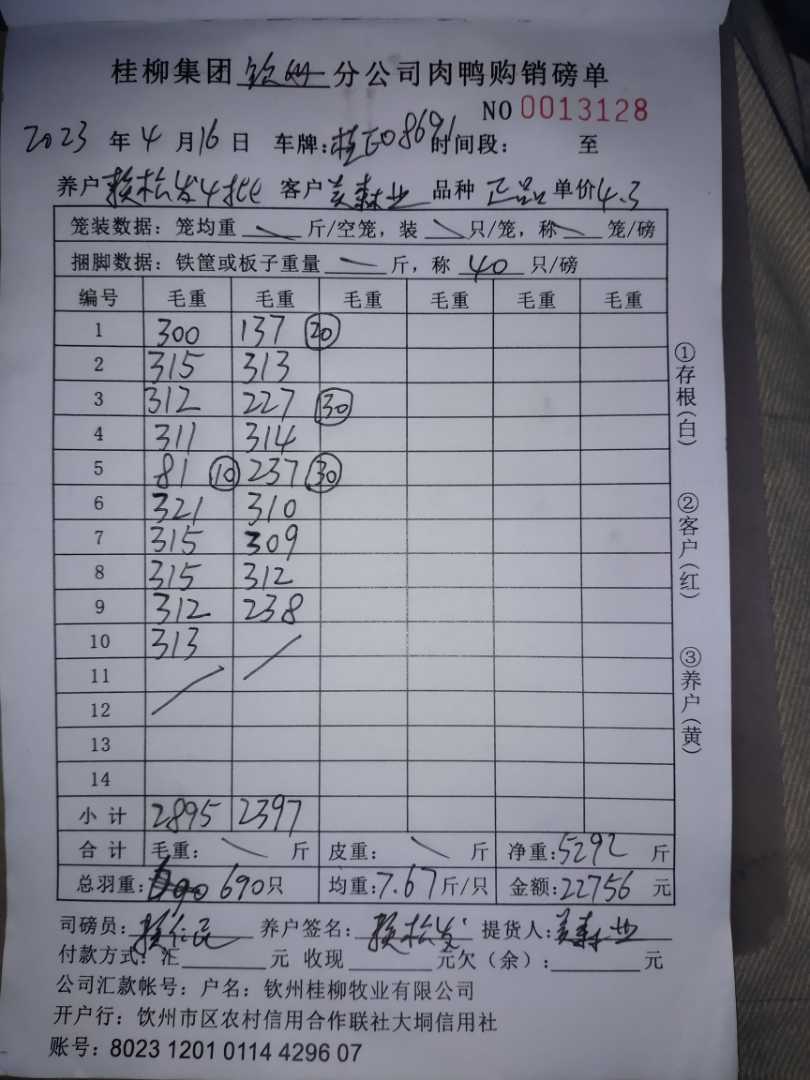 桂柳集团 钦州 分公司肉鸭购销磅单
NO 0013128
2023 年 4 月 16 日 车牌：桂E08691 时间段： 至
养户 赖松发4批 客户 吴森业 品种 正品 单价 4.3
笼装数据：笼均重 斤/空笼，装 只/笼，称 笼/磅
捆脚数据：铁筐或板子重量 斤，称 40 只/磅
编号 毛重 毛重 毛重 毛重 毛重 毛重
1 300 137 20
2 315 313
3 312 227 30
4 311 314
5 81 10 237 30
6 321 310
7 315 309
8 315 312
9 312 238
10 313
11
12
13
14
小计 2895 2397
合计 毛重： 斤 皮重： 斤 净重：5292 斤
总羽重： 690 只 均重：7.67 斤/只 金额：22756 元
司磅员：赖仁民 养户签名：赖松发 提货人：吴森业
付款方式：汇 元 收现 元欠（余）： 元
公司汇款帐号：户名：钦州桂柳牧业有限公司
开户行：钦州市区农村信用合作联社大垌信用社
账号：8023 1201 0114 4296 07
①存根（白）
②客户（红）
③养户（黄）